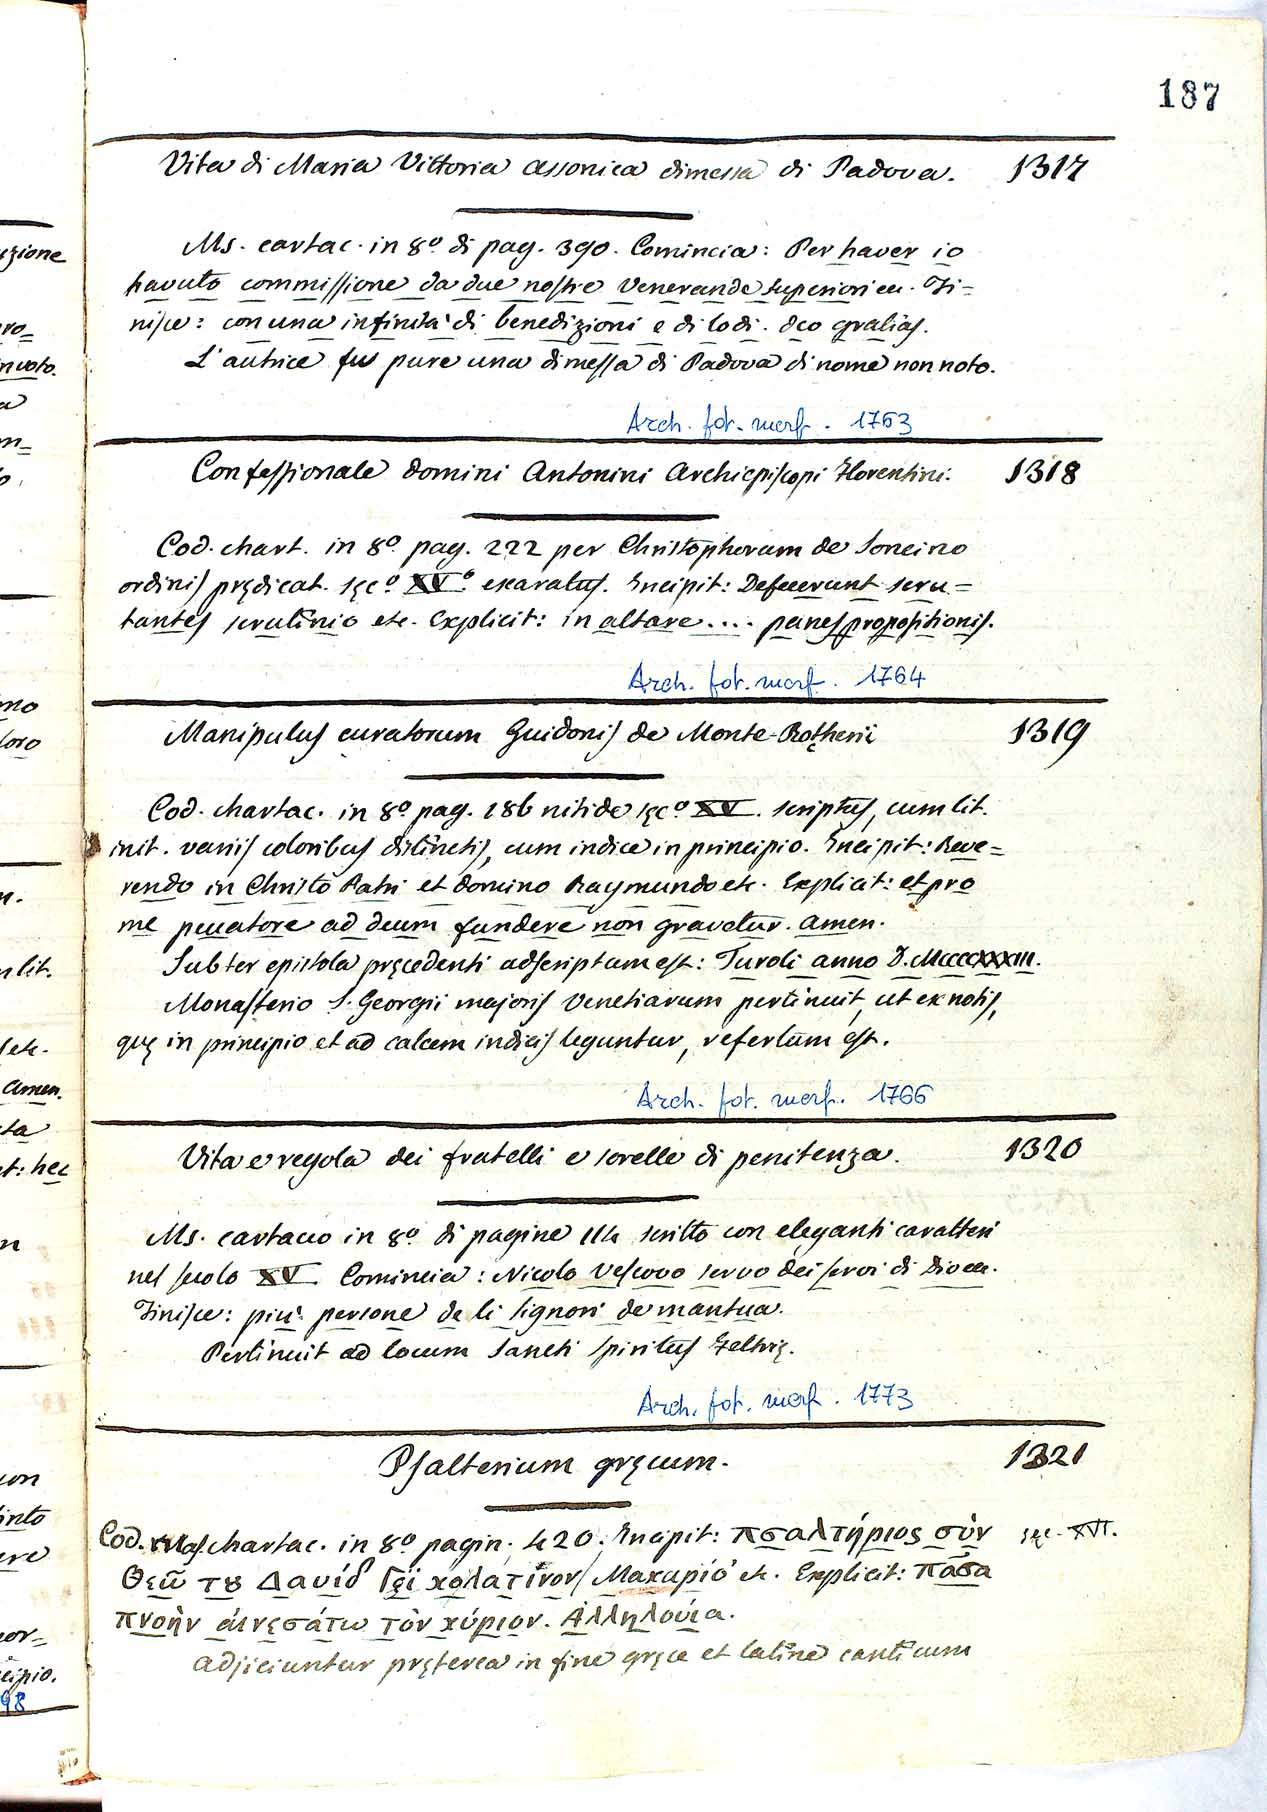 187
Vita di Maria Vittoria Assonica dimessa di Padova. 1317
Ms. cartac. in 8º di pag. 390. Comincia: Per haver io
havuto commissione da due nostre Venerande Superiori ec. Fi=
nisce: con una infinità di benedizioni e di lodi. Deo gratias.
L'autrice fu pure una dimessa di Padova di nome non noto.
Arch. fot. morf. 1763
Confessionale domini Antonini Archiepiscopi Florentini. 1318
Cod. chart. in 8º. pag. 222 per Christophorum de Soncino
ordinis prędicat. sęcº XVº. exaratus. Incipit: Defecerunt scru=
tantes scrutinio etc. Explicit: in altare .... panes propositionis.
Arch. fot. morf. 1764
Manipulus curatorum Guidonis de Monte-Rotherii 1319
Cod. chartac. in 8º. pag. 186 nitide sęcº XV. scriptus, cum lit.
init. variis coloribus distinctis, cum indice in principio. Incipit: Reve=
rendo in Christo Patri et domino Raymundo etc. Explicit: et pro
me peccatore ad deum fundere non gravetur. Amen.
Subter epistola pręcedenti adscriptum est: Turoli anno D. MCCCCXXXIII.
Monasterio S. Georgii majoris Venetiarum pertinuit, ut ex notis,
quę in principio et ad calcem indicis leguntur, refertum est.
Arch. fot. morf. 1766
Vita e regola dei fratelli e sorelle di penitenza. 1320
Ms. cartaceo in 8º. di pagine 114 scritto con eleganti caratteri
nel secolo XV. Comincia: Nicolo Vescovo servo dei servi di Dio ec.
Finisce: più persone de li signori de mantua.
Pertinuit ad locum Sancti Spiritus Feltrię.
Arch. fot. morf. 1773
Psalterium gręcum. 1321
Cod. chartac. in 8º pagin. 420. Incipit: πσαλτήριος σὺν sęc. XVI.
Θεῶ τȣ Δαυίδ Μακαριό etc. Explicit: πᾶσα
πνοὴν αἰνεσάτω τὸν κύριον. Ἀλληλούϊα.
Adjiciuntur pręterea in fine gręce et latine canticum